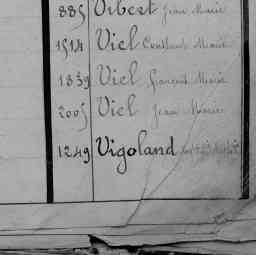 885 Vibert Jean Marie
1514 Viel Constant Marie
1839 Viel François Marie
2005 Viel Jean Marie
1249 Vigoland